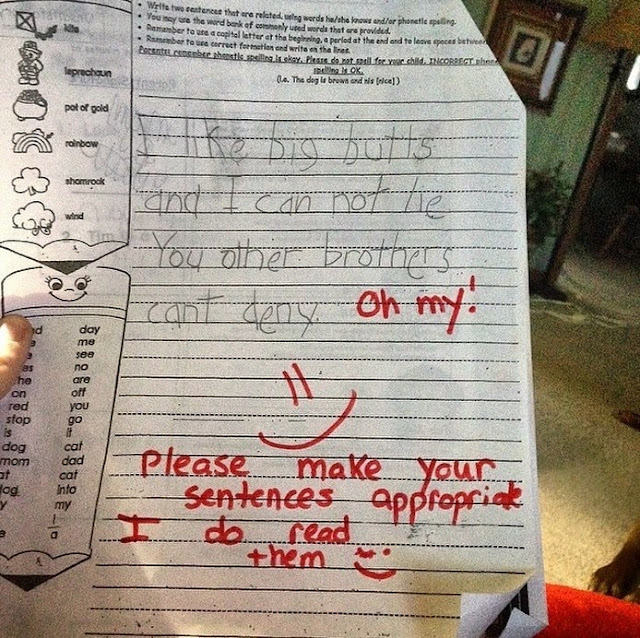 • Write two sentences that are related, using words he/she knows and/or phonetic spelling.
• You may use the word bank of commonly used words that are provided.
• Remember to use a capital letter at the beginning, a period at the end and to leave spaces between
• Remember to use correct formation and write on the lines.
Parents: remember phonetic spelling is okay. Please do not spell for your child, INCORRECT
spelling is OK.
(i.e. The dog is brown and nis [nice] )
kite
leprechaun
pot of gold
rainbow
shamrock
wind
I like big butts
and I can not lie
You other brothers
cant deny.
Oh my!
day
me
see
no
he are
on off
red you
stop go
is it
dog cat
mom dad
at cat
into
my
I
a
Please make your
sentences appropriate
I do read
them